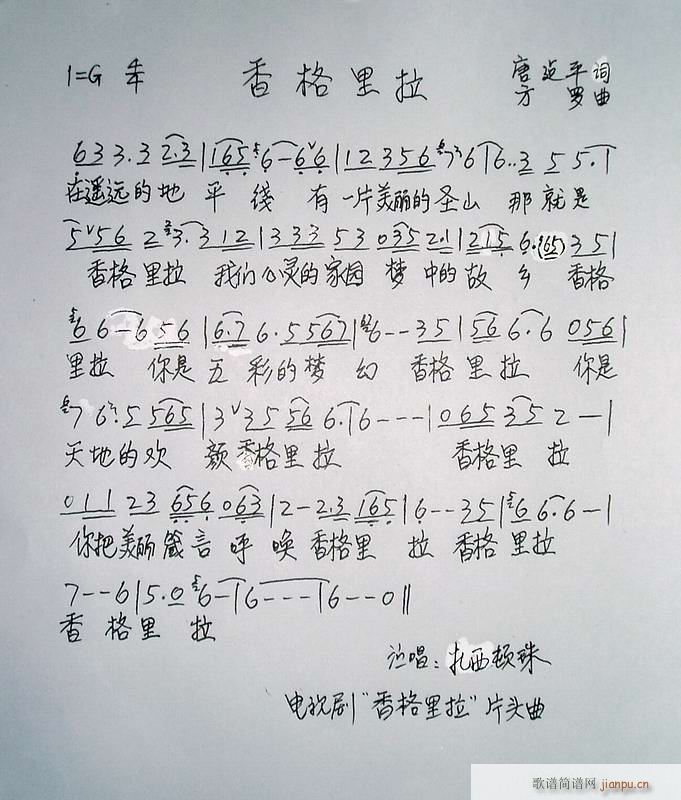 1=G 4/4 香格里拉 唐 平 词
方 罗 曲
6 3 3. 3 2. 3 | 1 6 5 6 - 6 6 | 1 2 3 5 6 7 6 | 6.. 3 5 5. 1
在遥远的地 平 线 有 一片美丽的圣山 那 就 是
5 5 6 2 3. 3 1 2 | 3 3 3 5 3 0 3 5 2. 1 | 2 1 5 6. (165) 3 5 |
香格里拉 我们心灵的家园 梦 中的故 乡 香格
6 6 - 6 5 6 | 6. 7 6. 5 5 6 7 | 6 - - 3 5 | 5 6 6. 6 0 5 6 |
里拉 你是 五 彩的梦 幻 香格 里拉 你是
7 6. 5 5 6 5 | 3 3 5 5 6 6. | 6 - - - | 0 6 5 3 5 2 - |
天地的欢 颜香格里拉 香格里 拉
0 1 1 2 3 6 5 6 0 6 3 | 2 - 2. 3 1 6 5 | 6 - - 3 5 | 6 6. 6 - |
你把美丽箴言 呼 唤 香格里 拉 香格 里拉
7 - - 6 | 5. 0 6 - | 6 - - - | 6 - - 0 ||
香 格里 拉
演唱：扎西顿珠
电视剧"香格里拉"片头曲
歌谱简谱网 jianpu.cn